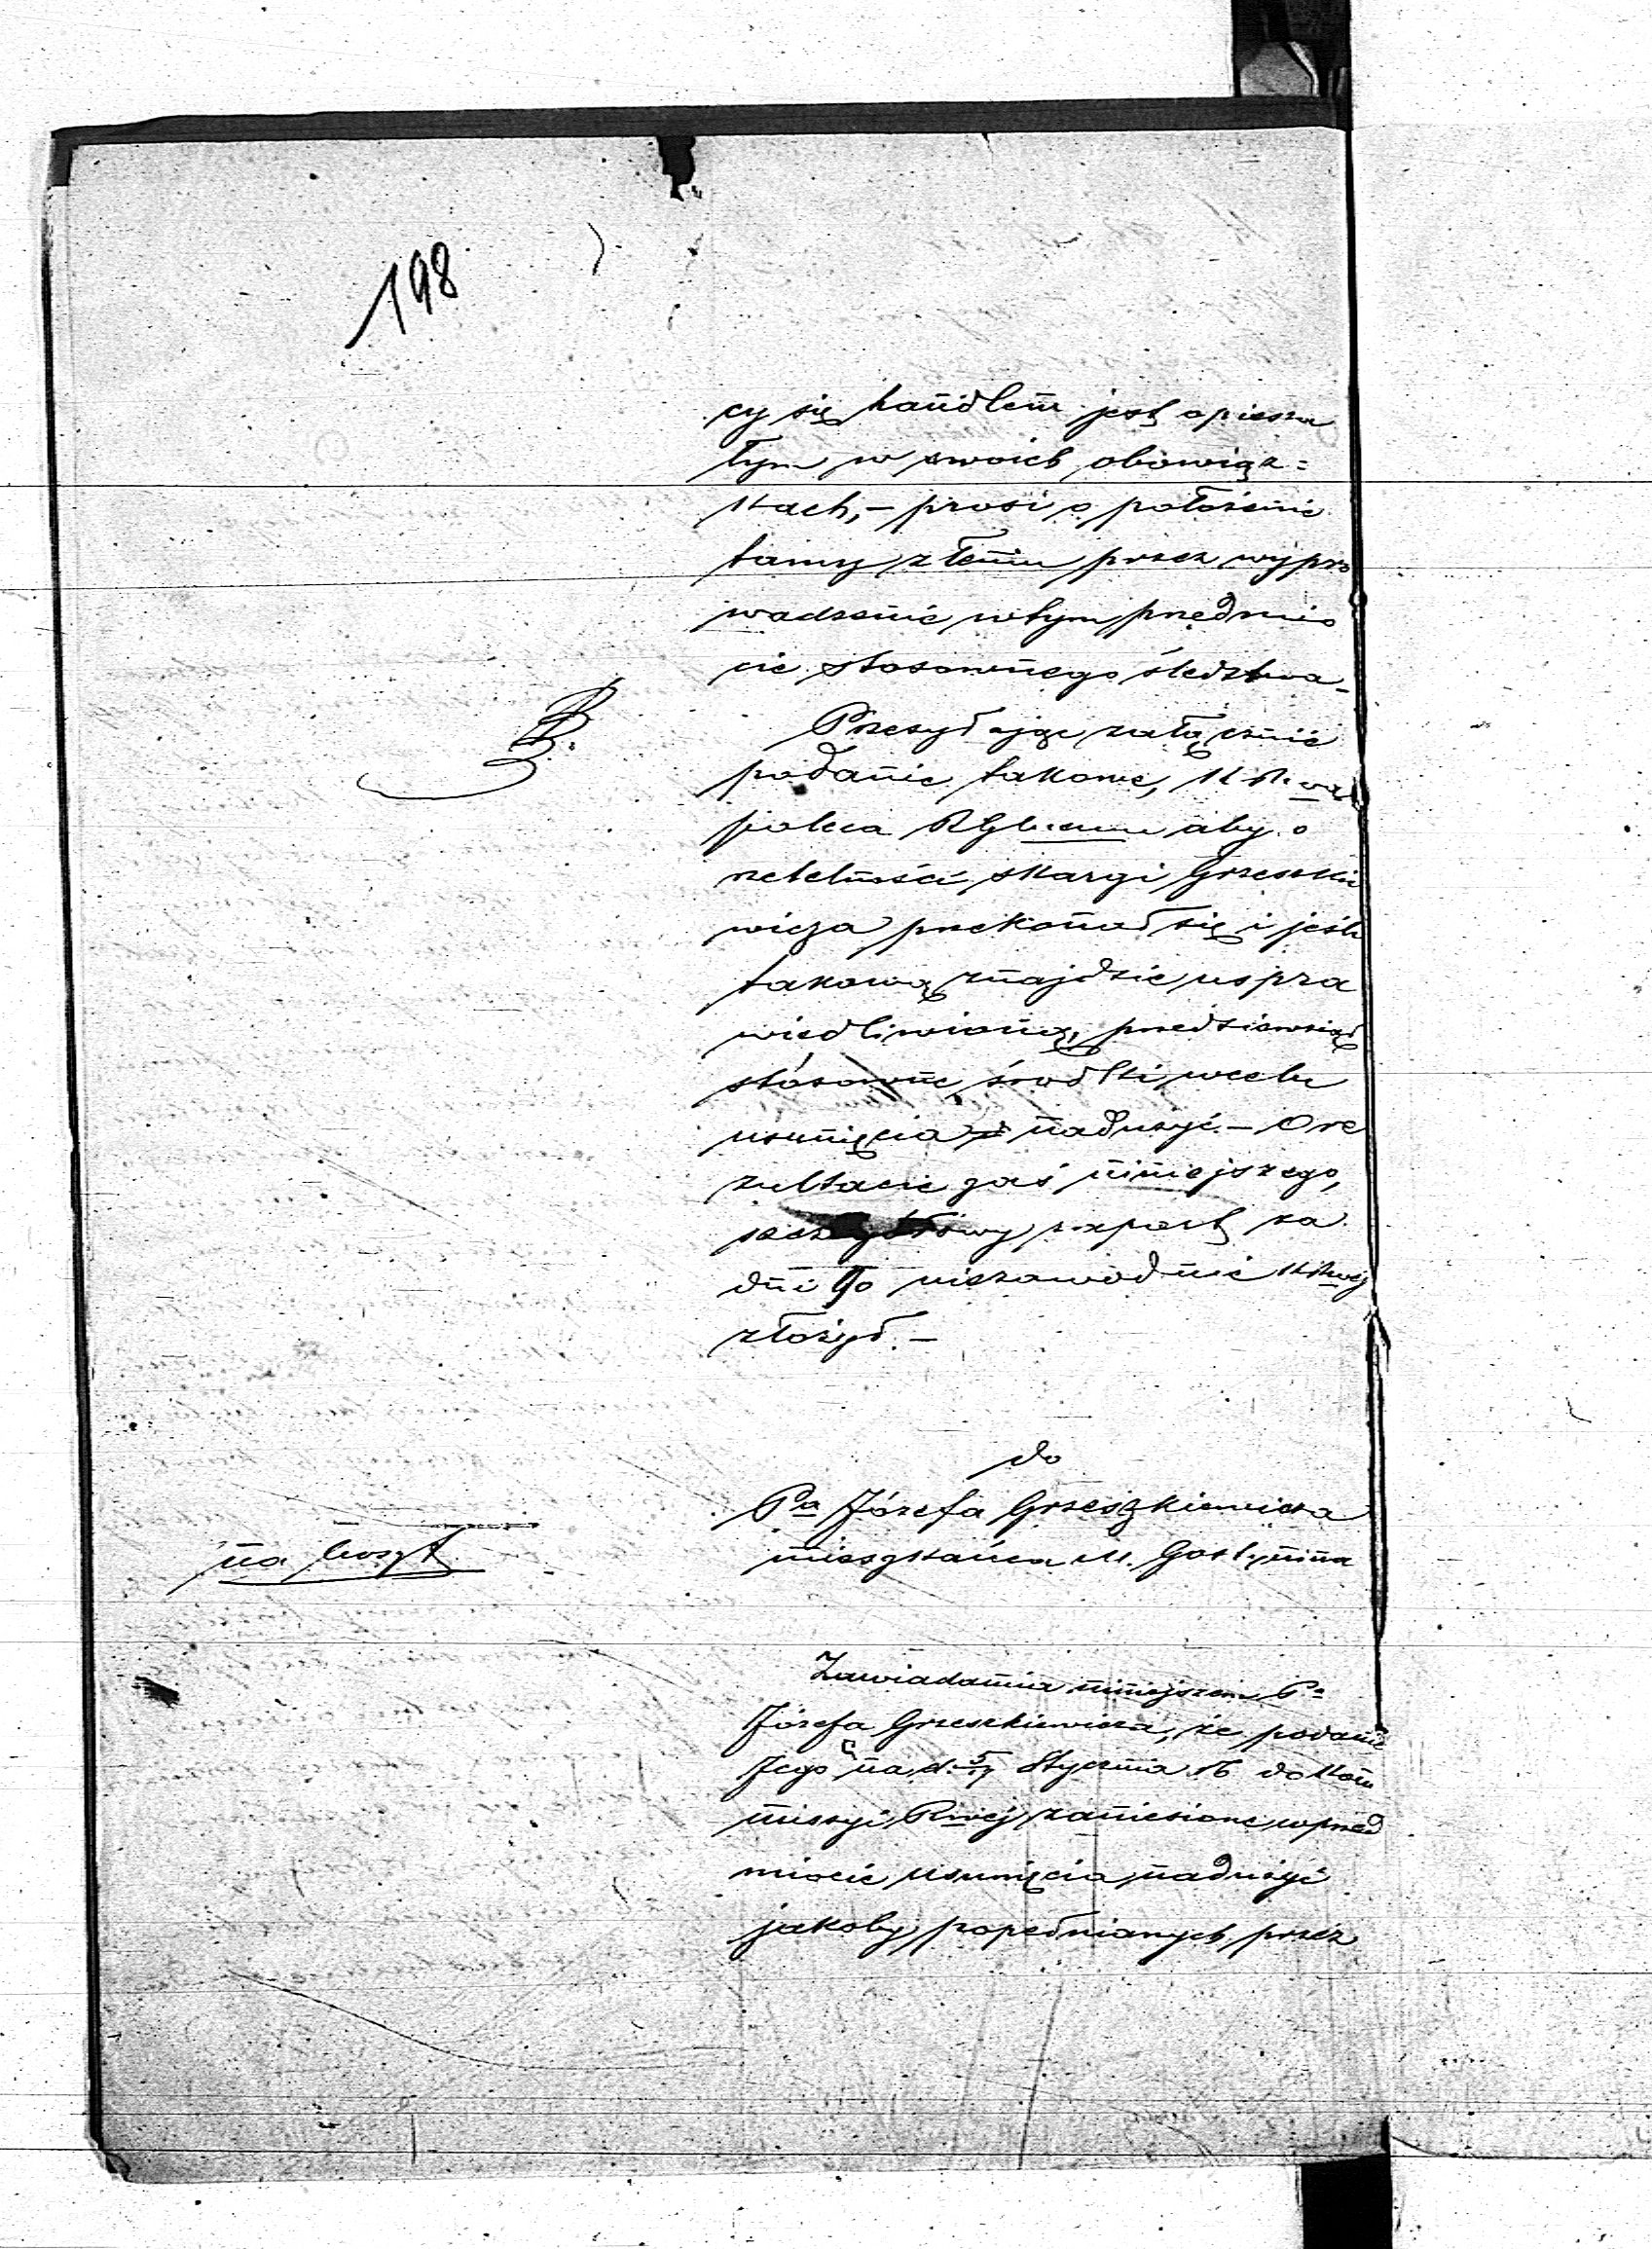 198
cy się handlem jest opiesza
łym w swoich obowiąz=
kach,- prosi o położenie
tamy złemu przez wypro
wadzenie wtym przedmio
cie stosownego śledztwa_
Przesyłając załącznie
podanie takowe, K R.
poleca aby o
rzetelności skargi Grzeszkie
wicza przekonał się i jeśli
takową znajdzie uspra
wiedliwioną, przedsiewziął
stósowne środki wcelu
usunięcia nadużyć.- O re
zultacie zaś niniejszego,
szczegółowy rapport za
dni niezawodnie
złożył.-
do
Pa Józefa Grzeszkiewicza
mieszkańca M. Gostynina
na koszt
Zawiadamia niniejszem Pa
Józefa Grzeszkiewicza, że podanie
Jego na d. Stycznia rb. do Kom
missyi Rwéj zaniesione, wprzed
miocie usunięcia nadużyć
jakoby popełnianych przez